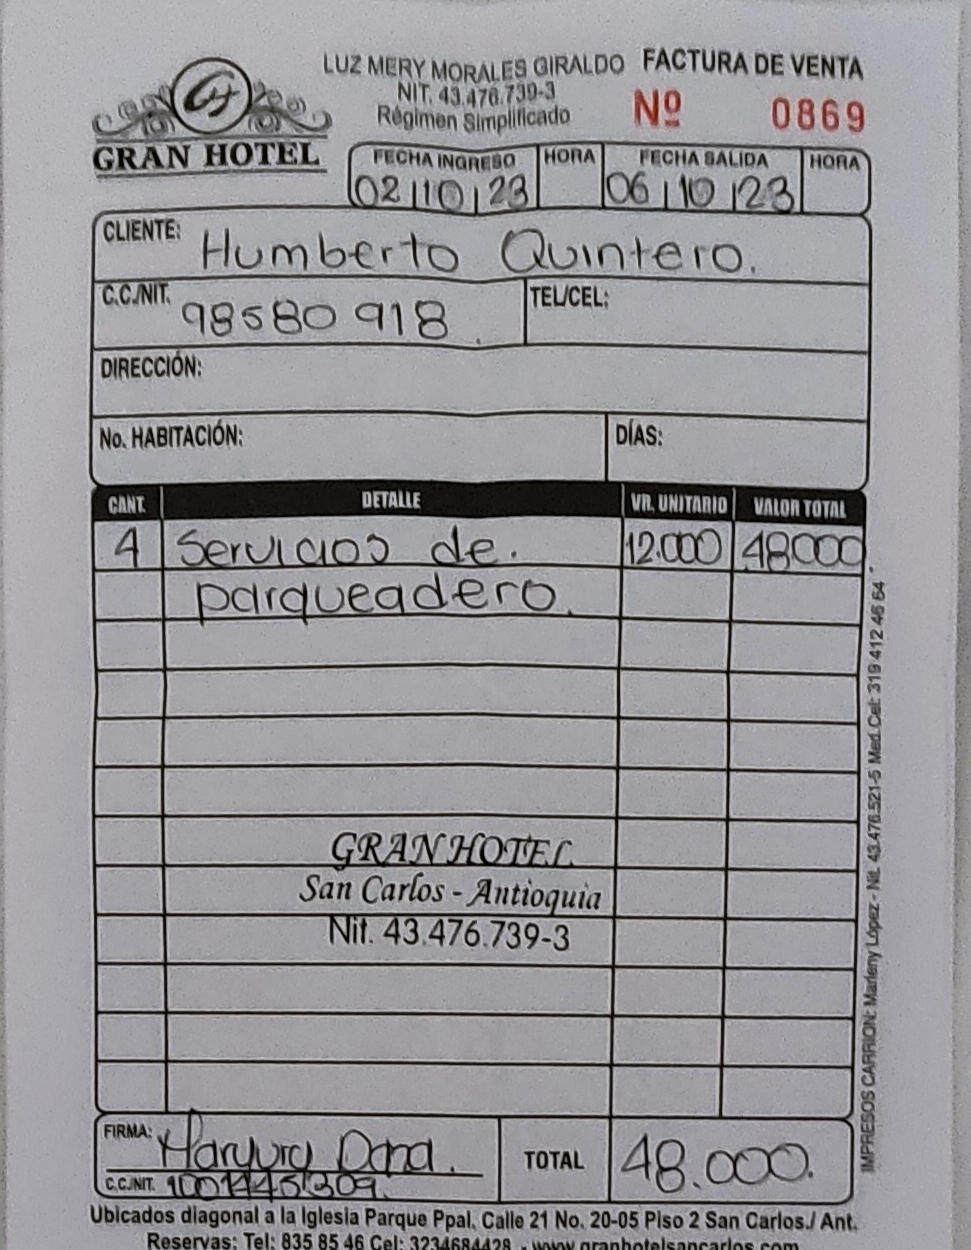 LUZ MERY MORALES GIRALDO FACTURA DE VENTA
NIT. 43.476.739-3
Régimen Simplificado
Nº 0869
GRAN HOTEL
FECHA INGRESO HORA FECHA SALIDA HORA
02/10/23 06/10/23
CLIENTE: Humberto Quintero.
C.C./NIT. 98580918. TEL/CEL:
DIRECCIÓN:
No. HABITACIÓN: DÍAS:
CANT. DETALLE VR. UNITARIO VALOR TOTAL
4 Servicios de. 12.000 48000
parqueadero.
GRAN HOTEL
San Carlos - Antioquia
Nit. 43.476.739-3
IMPRESOS CARRION: Marleny López - Nit. 43.476.521-5 Med. Cel: 319 412 46 64
FIRMA:
TOTAL 48.000.
C.C./NIT.
Ubicados diagonal a la Iglesia Parque Ppal. Calle 21 No. 20-05 Piso 2 San Carlos./ Ant.
Reservas: Tel: 835 85 46 Cel: 3234684428 - www.granhotelsancarlos.com